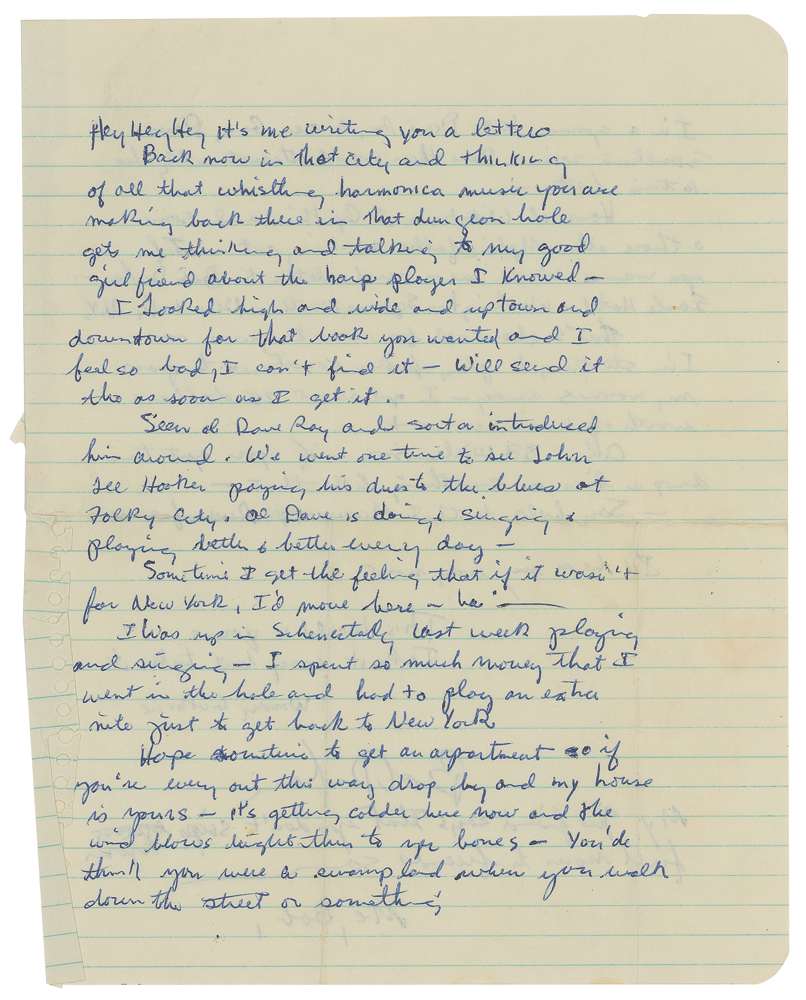 Hey Hey Hey it's me writing you a letter
Back now in that city and thinking
of all that whistling harmonica music you are
making back there in that dungeon hole
gets me thinking and talking to my good
girlfriend about the harp player I Knowed —
I Looked high and wide and uptown and
downtown for that book you wanted and I
feel so bad, I can't find it — Will send it
tho as soon as I get it.
Seen ol Dave Ray and sorta introduced
him around. We went one time to see John
Lee Hooker paying his dues to the blues at
Folky City. Ol Dave is doing & singing &
playing better & better every day —
Sometime I get the feeling that if it wasn't
for New York, I'd move here — ha! —
I Was up in Schenectady last week playing
and singing — I spent so much money that I
went in the hole and had to play an extra
nite just to get back to New York
Hope sometime to get an apartment so if
you're every out this way drop by and my house
is yours — it's getting colder here now and the
wind blows right thru to yr bones — You'de
think you were a swamp land when you walk
down the street or something